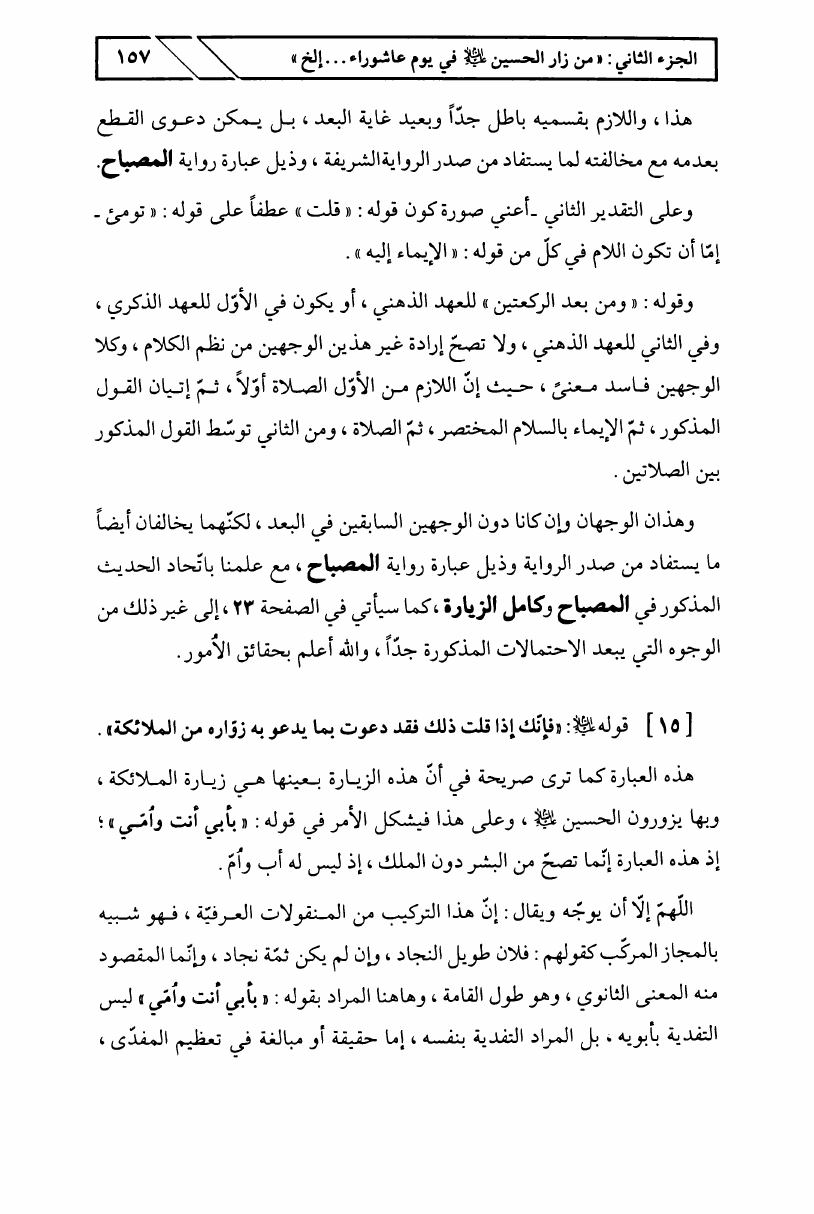 الجزء الثاني : « من زار الحسين عليه السلام في يوم عاشوراء ... إلخ » ١٥٧
هذا ، واللازم بقسميه باطل جدّاً وبعيد غاية البعد ، بل يمكن دعوى القطع
بعدمه مع مخالفته لما يستفاد من صدر الرواية الشريفة ، وذيل عبارة رواية المصباح.
وعلى التقدير الثاني ـ أعني صورة كون قوله : « قلت » عطفاً على قوله : « تومئ ـ
إمّا أن تكون اللام في كلّ من قوله : « الإيماء إليه » .
وقوله : « ومن بعد الركعتين » للعهد الذهني ، أو يكون في الأوّل للعهد الذكري ،
وفي الثاني للعهد الذهني ، ولا تصحّ إرادة غير هذين الوجهين من نظم الكلام ، وكلا
الوجهين فاسد معنىً ، حيث إنّ اللازم من الأوّل الصلاة أوّلاً ، ثمّ إتيان القول
المذكور ، ثمّ الإيماء بالسلام المختصر ، ثمّ الصلاة ، ومن الثاني توسّط القول المذكور
بين الصلاتين .
وهذان الوجهان وإن كانا دون الوجهين السابقين في البعد ، لكنّهما يخالفان أيضاً
ما يستفاد من صدر الرواية وذيل عبارة رواية المصباح ، مع علمنا باتّحاد الحديث
المذكور في المصباح وكامل الزيارة ، كما سيأتي في الصفحة ٢٣ ، إلى غير ذلك من
الوجوه التي يبعد الاحتمالات المذكورة جدّاً ، والله أعلم بحقائق الأُمور .
[ ١٥ ] قوله عليه السلام : «فإنّك إذا قلت ذلك فقد دعوت بما يدعو به زوّاره من الملائكة» .
هذه العبارة كما ترى صريحة في أنّ هذه الزيارة بعينها هي زيارة الملائكة ،
وبها يزورون الحسين عليه السلام ، وعلى هذا فيشكل الأمر في قوله : « بأبي أنت وأُمّي » ؛
إذ هذه العبارة إنّما تصحّ من البشر دون الملك ، إذ ليس له أب وأُمّ .
اللّهمّ إلّا أن يوجّه ويقال : إنّ هذا التركيب من المنقولات العرفيّة ، فهو شبيه
بالمجاز المركّب كقولهم : فلان طويل النجاد ، وإن لم يكن ثمّة نجاد ، وإنّما المقصود
منه المعنى الثانوي ، وهو طول القامة ، وهاهنا المراد بقوله : « بأبي أنت وأُمّي » ليس
التفدية بأبويه ، بل المراد التفدية بنفسه ، إما حقيقة أو مبالغة في تعظيم المفدّى ،